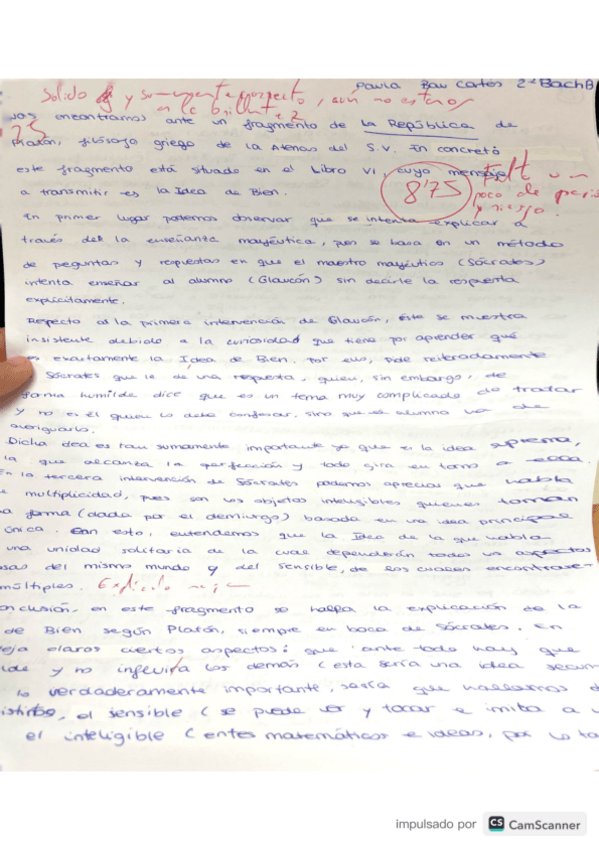 Paula Bau Cortés 2º Bach B
Solido y sumamente correcto, aún no estamos
en lo brillante
7.5
nos encontramos ante un fragmento de la República de
Platón, filósofo griego de la Atenas del S.V. En concreto
este fragmento está situado en el Libro VI, cuyo mensaje
a transmitir es la Idea de Bien.
8'75
Falta un
poco de
y riesgo.
En primer lugar podemos observar que se intenta explicar a
través de la enseñanza mayéutica, pues se basa en un método
de preguntas y respuestas en que el maestro mayéutico (Sócrates)
intenta enseñar al alumno (Glaucón) sin decirle la respuesta
explícitamente.
Respecto a la primera intervención de Glaucón, éste se muestra
insistente debido a la curiosidad que tiene por aprender qué
es exactamente la Idea de Bien. Por ello, pide reiteradamente
Sócrates que le de una respuesta, quien, sin embargo, de
forma humilde dice que es un tema muy complicado de tratar
y no es él quien lo debe confesar, sino que el alumno ha de
averiguarlo.
Dicha idea es tan sumamente importante ya que es la idea suprema,
la que alcanza la perfección y todo gira en torno a ella.
En la tercera intervención de Sócrates podemos apreciar que habla
de multiplicidad, pues son los objetos inteligibles quienes toman
la forma (dada por el demiurgo) basada en una idea principal
única. Con esto, entendemos que la Idea de la que habla
una unidad solitaria de la cual dependerán todos los aspectos
cosas del mismo mundo y del sensible, de los cuales encontraremos
múltiples. Explícalo mejor
conclusión, en este fragmento se halla la explicación de la
de Bien según Platón, siempre en boca de Sócrates. En
deja claros ciertos aspectos: que ante todo hay que
y no inferir los demás (esta sería una idea secun
lo verdaderamente importante, sería que hallamos d
distintos, el sensible (se puede ver y tocar e imita a
el inteligible (entes matemáticos e ideas, por lo ta
impulsado por CS CamScanner